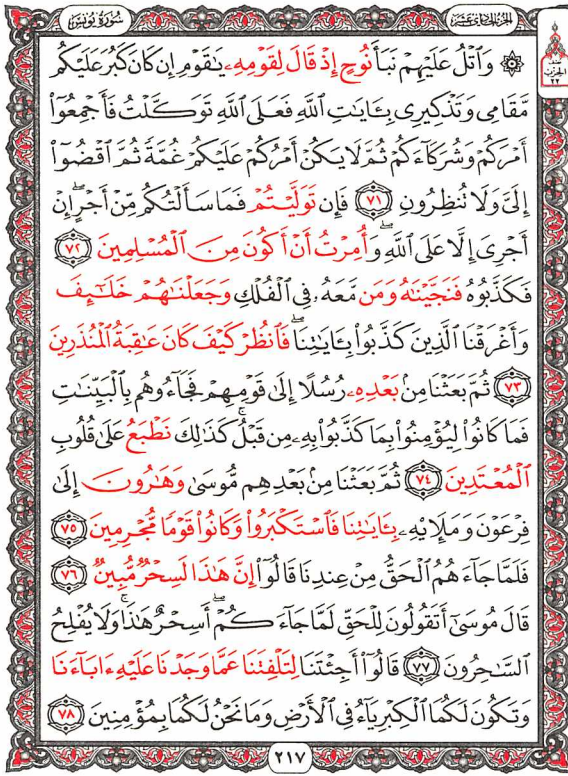 سُورَةُ يُونُس
الجُزءُ الحَادِي عَشَر
۞ وَٱتْلُ عَلَيْهِمْ نَبَأَ نُوحٍ إِذْ قَالَ لِقَوْمِهِۦ يَٰقَوْمِ إِن كَانَ كَبُرَ عَلَيْكُم
مَّقَامِى وَتَذْكِيرِى بِـَٔايَٰتِ ٱللَّهِ فَعَلَى ٱللَّهِ تَوَكَّلْتُ فَأَجْمِعُوٓا۟
أَمْرَكُمْ وَشُرَكَآءَكُمْ ثُمَّ لَا يَكُنْ أَمْرُكُمْ عَلَيْكُمْ غُمَّةً ثُمَّ ٱقْضُوٓا۟
إِلَىَّ وَلَا تُنظِرُونِ ٧١ فَإِن تَوَلَّيْتُمْ فَمَا سَأَلْتُكُم مِّنْ أَجْرٍ إِنْ
أَجْرِىَ إِلَّا عَلَى ٱللَّهِ وَأُمِرْتُ أَنْ أَكُونَ مِنَ ٱلْمُسْلِمِينَ ٧٢
فَكَذَّبُوهُ فَنَجَّيْنَٰهُ وَمَن مَّعَهُۥ فِى ٱلْفُلْكِ وَجَعَلْنَٰهُمْ خَلَٰٓئِفَ
وَأَغْرَقْنَا ٱلَّذِينَ كَذَّبُوا۟ بِـَٔايَٰتِنَا فَٱنظُرْ كَيْفَ كَانَ عَٰقِبَةُ ٱلْمُنذَرِينَ
٧٣ ثُمَّ بَعَثْنَا مِنۢ بَعْدِهِۦ رُسُلًا إِلَىٰ قَوْمِهِمْ فَجَآءُوهُم بِٱلْبَيِّنَٰتِ
فَمَا كَانُوا۟ لِيُؤْمِنُوا۟ بِمَا كَذَّبُوا۟ بِهِۦ مِن قَبْلُ كَذَٰلِكَ نَطْبَعُ عَلَىٰ قُلُوبِ
ٱلْمُعْتَدِينَ ٧٤ ثُمَّ بَعَثْنَا مِنۢ بَعْدِهِم مُّوسَىٰ وَهَٰرُونَ إِلَىٰ
فِرْعَوْنَ وَمَلَإِي۟هِۦ بِـَٔايَٰتِنَا فَٱسْتَكْبَرُوا۟ وَكَانُوا۟ قَوْمًا مُّجْرِمِينَ ٧٥
فَلَمَّا جَآءَهُمُ ٱلْحَقُّ مِنْ عِندِنَا قَالُوٓا۟ إِنَّ هَٰذَا لَسِحْرٌ مُّبِينٌ ٧٦
قَالَ مُوسَىٰٓ أَتَقُولُونَ لِلْحَقِّ لَمَّا جَآءَكُمْ أَسِحْرٌ هَٰذَا وَلَا يُفْلِحُ
ٱلسَّٰحِرُونَ ٧٧ قَالُوٓا۟ أَجِئْتَنَا لِتَلْفِتَنَا عَمَّا وَجَدْنَا عَلَيْهِ ءَابَآءَنَا
وَتَكُونَ لَكُمَا ٱلْكِبْرِيَآءُ فِى ٱلْأَرْضِ وَمَا نَحْنُ لَكُمَا بِمُؤْمِنِينَ ٧٨
٢١٧